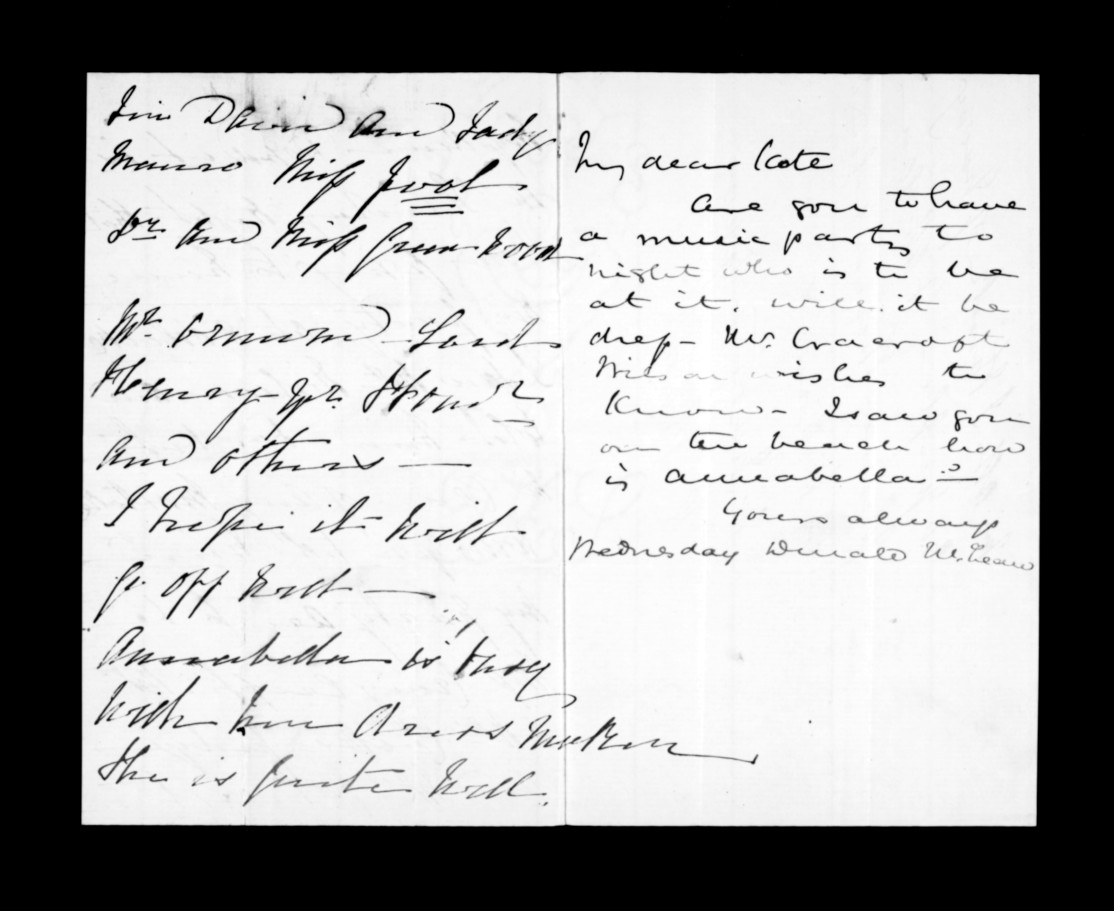 Sir David and Lady
Monro Miss
Dr. and Miss Greenwood
Mr. Ormond Lord
Henry
and others —
I hope it will
go off well —
Annabella is busy
with her dress maker
She is quite well.
My dear Kate
Are you to have
a music party to
night who is to be
at it. will it be
dress - Mr. Cracroft
Wilson wishes to
know - I saw you
on the beach how
is Annabella?
Yours always
Wednesday Donald McLean